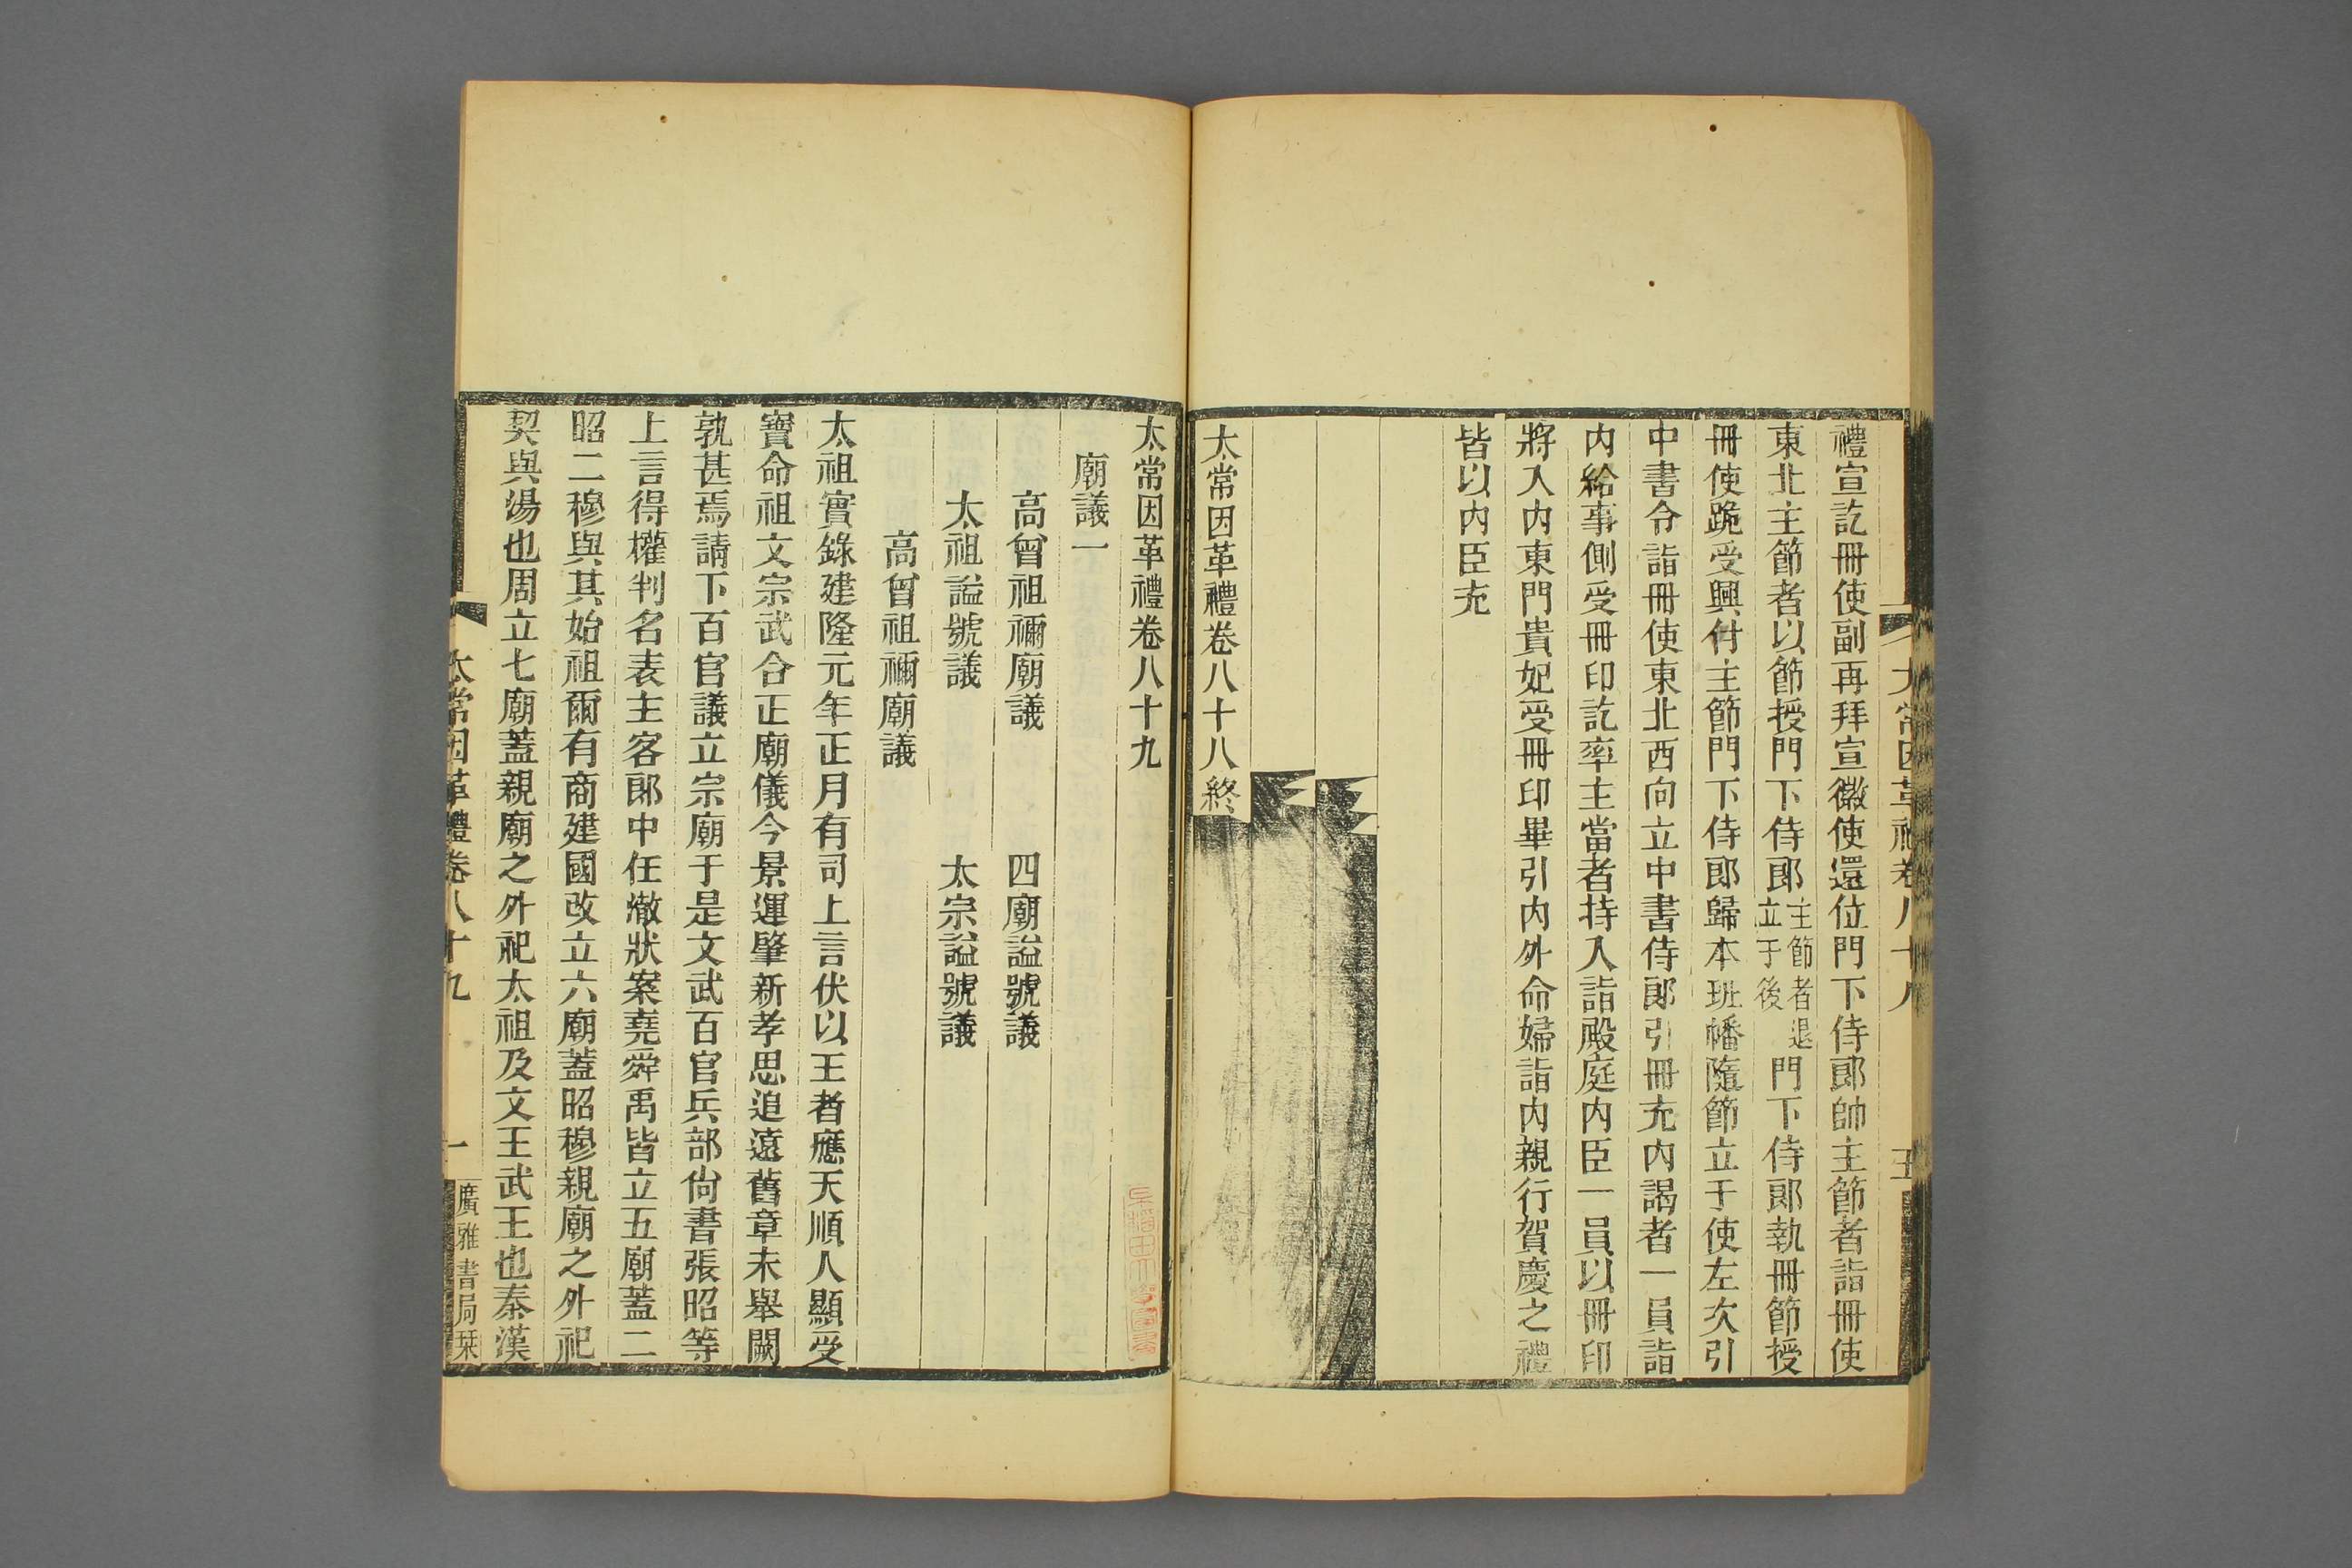 禮宣訖冊使副再拜宣徽使還位門下侍郎帥主節者詣冊使
東北主節者以節授門下侍郎主節者退立于後門下侍郎執冊節授
冊使跪受興付主節門下侍郎歸本班幡隨節立于使左次引
中書令詣冊使東北西向立中書侍郎引冊充內謁者一員詣
內給事側受冊印訖率主當者持入詣殿庭內臣一員以冊印
將入內東門貴妃受冊印畢引內外命婦詣內親行賀慶之禮
皆以內臣充
太常因革禮卷八十八終
太常因革禮卷八十八
五
太常因革禮卷八十九
廟議一
高曾祖禰廟議 四廟謚號議
太祖謚號議 太宗謚號議
高曾祖禰廟議
太祖實錄建隆元年正月有司上言伏以王者應天順人顯受
寶命祖文宗武合正廟儀今景運肇新孝思追遠舊章未舉闕
孰甚焉請下百官議立宗廟于是文武百官兵部尙書張昭等
上言得權判名表主客郎中任澈狀案堯舜禹皆立五廟蓋二
昭二穆與其始祖爾有商建國改立六廟蓋昭穆親廟之外祀
契與湯也周立七廟蓋親廟之外祀太祖及文王武王也秦漢
太常因革禮卷八十九
一
廣雅書局栞